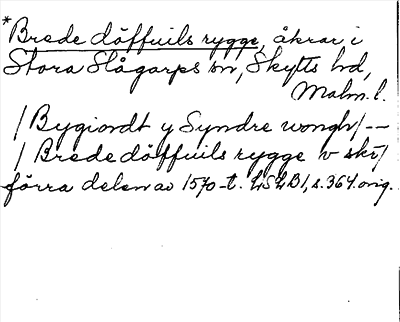 *Brede döffuils rygge, åkrar i
Stora Slågarps sn, Skytts hd,
Malm. l.
/ Bygiordt y Syndre wongh / --
/ Brede döffuils rygge v ski /
förra delen av 1570-t. LSLB1, s. 364. orig.